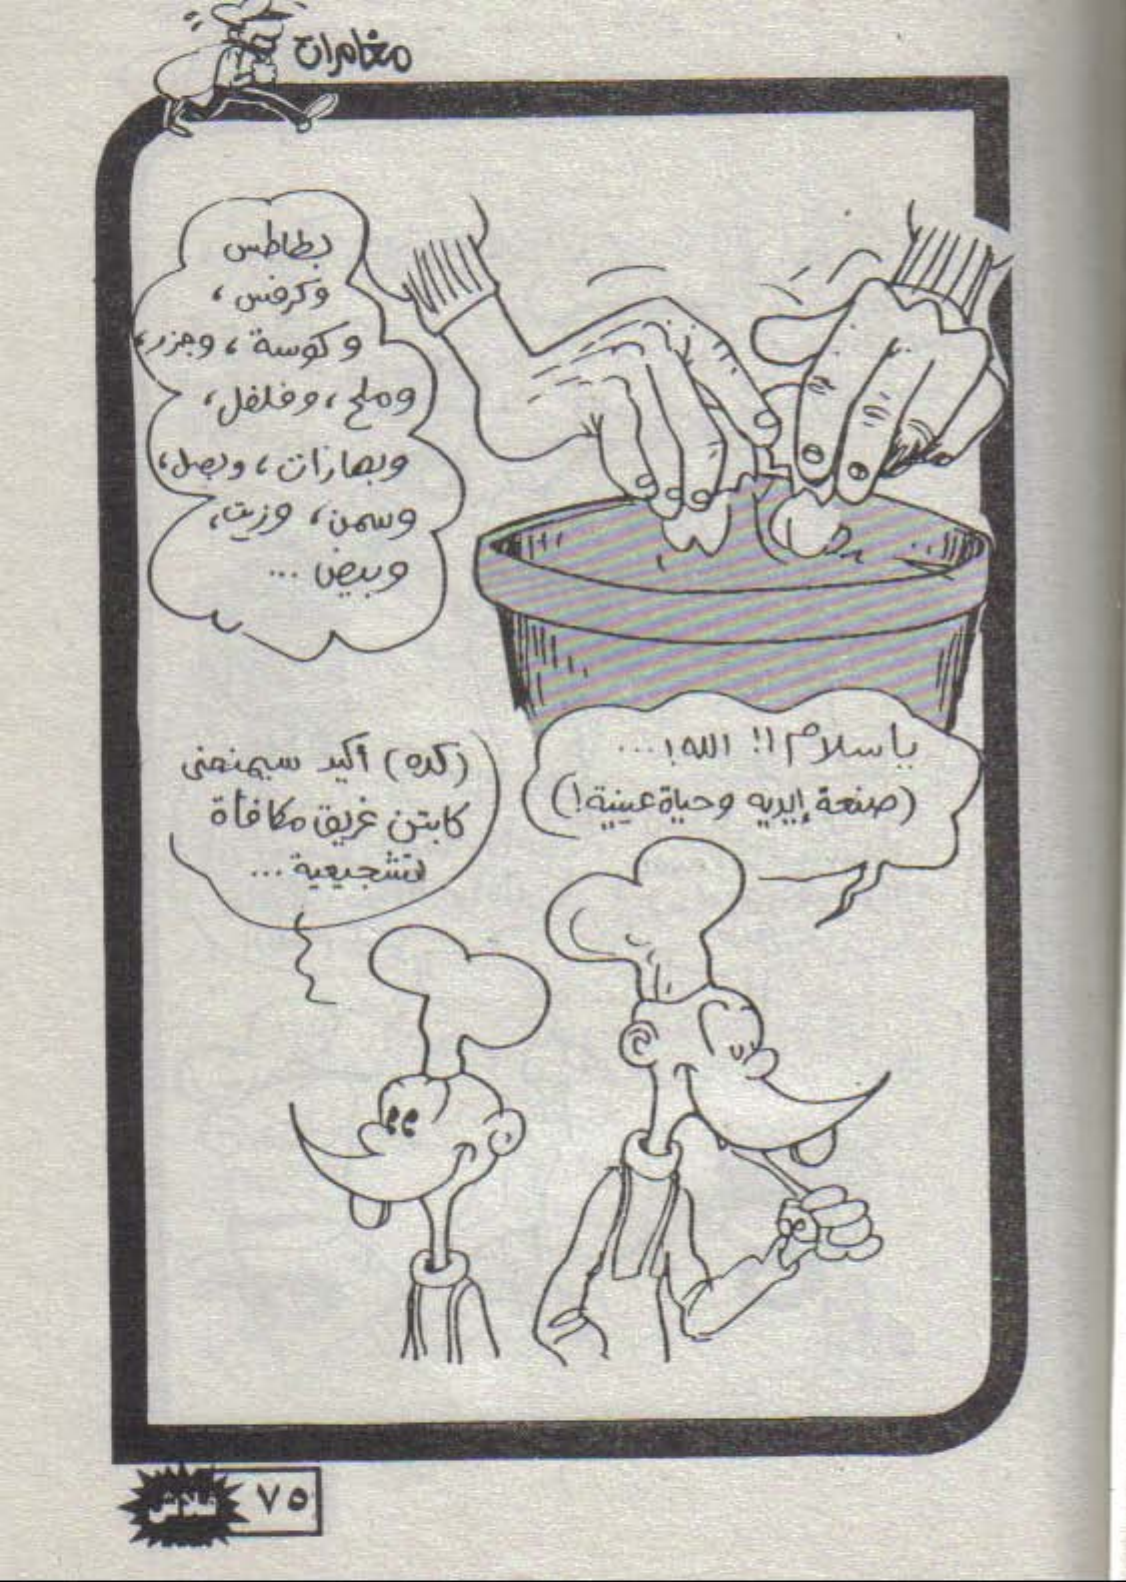 مغامرات
بطاطس
وكرفس ،
و كوسة ، وجزر،
وملح ، وفلفل ،
وبهارات ، وبصل ،
وسمن ، وزيت ،
وبيض ...
ياسلام !! الله ! ...
(صنعة إيديه وحياة عينية ! )
(كده) أكيد سيمنحنى
كابتن غريق مكافأة
تشجيعية ...
فلاش
٧٥